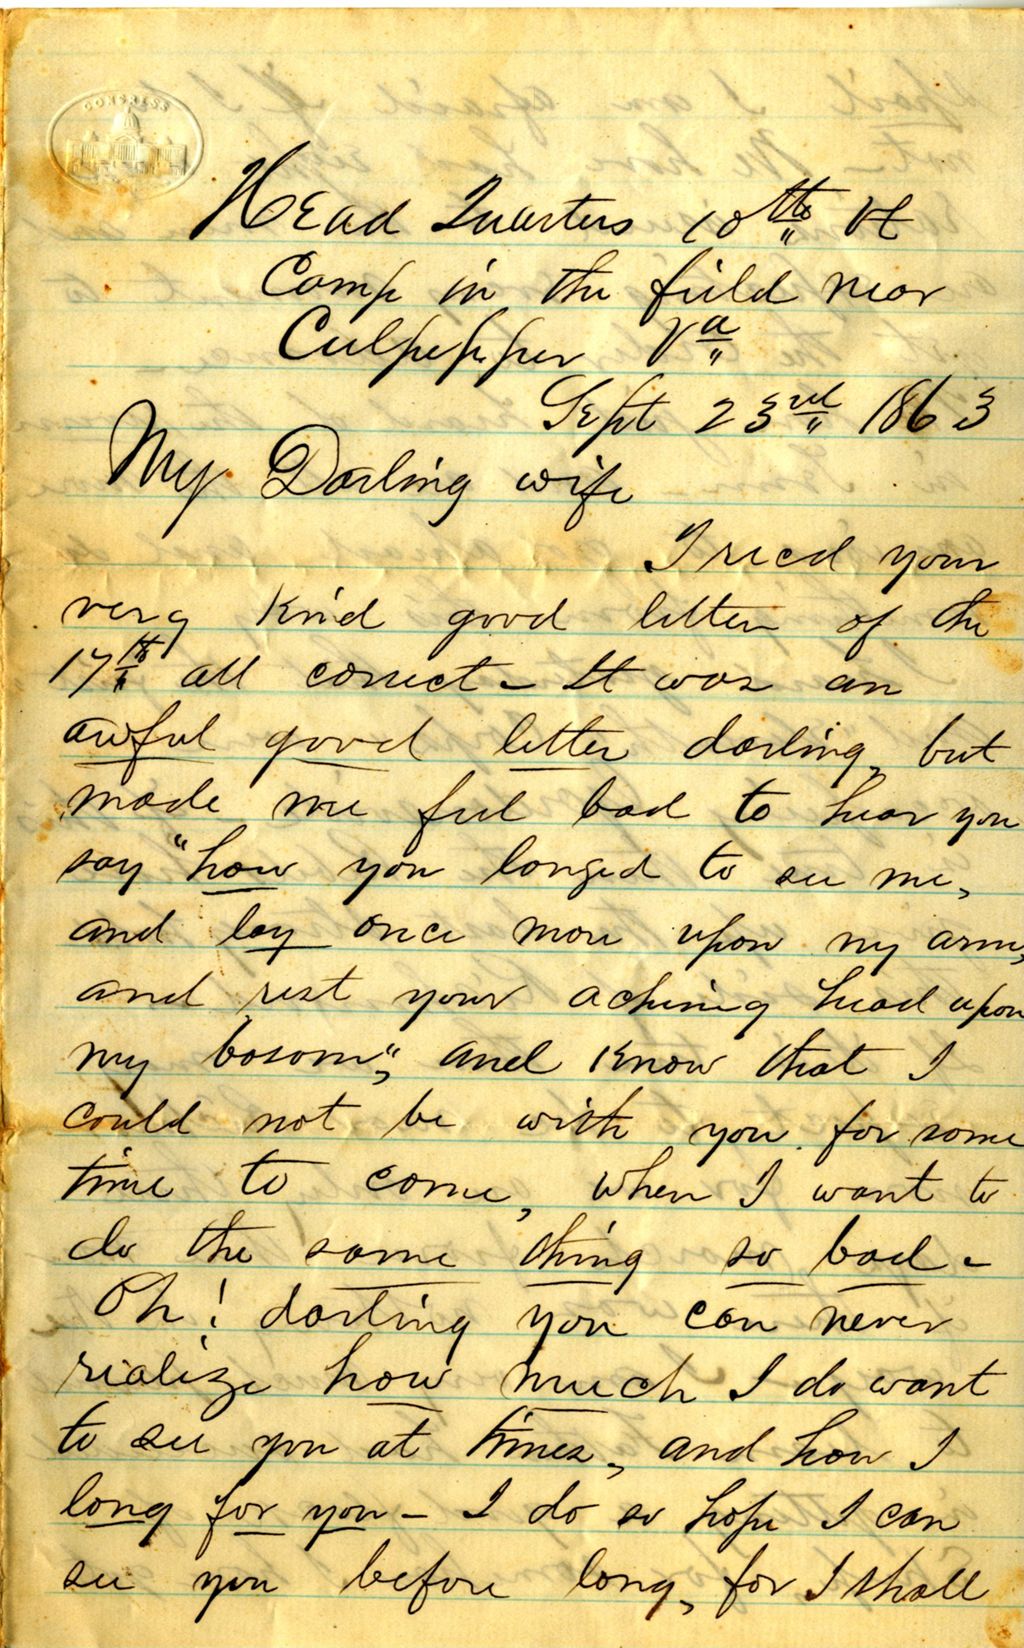 CONGRESS
Head Quarters 10th Vt
Camp in the field near
Culpepper Va
Sept 23rd 1863
My Darling wife
I recd your
very kind good letter of the
17th all correct – It was an
awful good letter darling, but
made me feel bad to hear you
say "how you longed to see me,
and lay once more upon my arm,
and rest your aching head upon
my bosom", and know that I
could not be with you for some
time to come, when I want to
do the same thing so bad –
Oh! darling you can never
rialize how much I do want
to see you at times, and how I
long for you – I do so hope I can
see you before long, for I shall